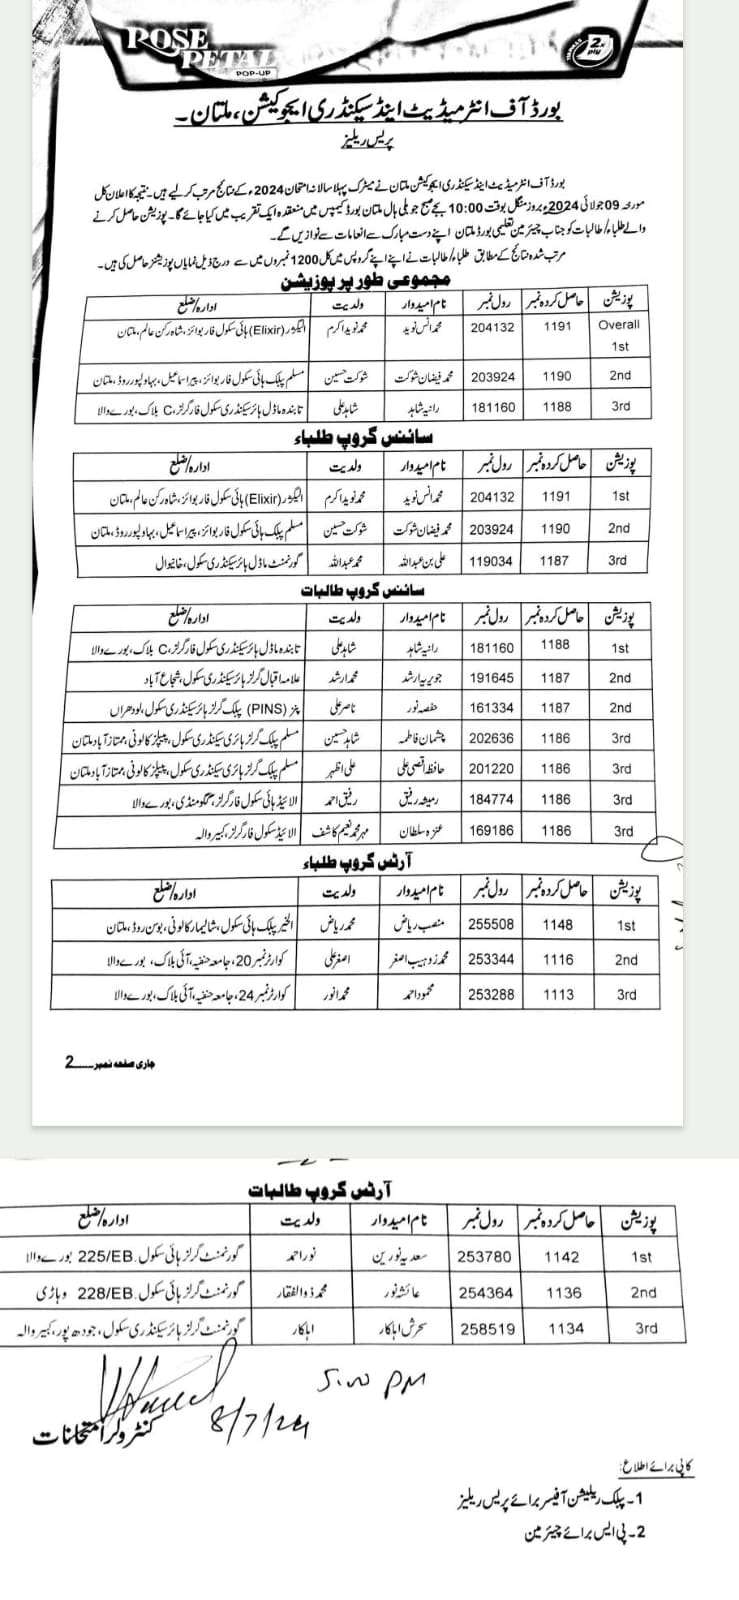 ROSE PETAL
POP-UP
2 Ply
بورڈ آف انٹرمیڈیٹ اینڈ سیکنڈری ایجوکیشن، ملتان۔
پریس ریلیز
بورڈ آف انٹرمیڈیٹ اینڈ سیکنڈری ایجوکیشن ملتان نے میٹرک پہلا سالانہ امتحان 2024ء کے نتائج مرتب کر لیے ہیں۔ نتیجہ کا اعلان کل
مورخہ 09 جولائی 2024ء بروز منگل بوقت 10:00 بجے صبح جوبلی ہال ملتان بورڈ کیمپس میں منعقدہ ایک تقریب میں کیا جائے گا۔ پوزیشن حاصل کرنے
والے طلباء/طالبات کو جناب چیئرمین تعلیمی بورڈ ملتان اپنے دست مبارک سے انعامات سے نوازیں گے۔
مرتب شدہ نتائج کے مطابق طلباء/طالبات نے اپنے اپنے گروپس میں کل 1200 نمبروں میں سے درج ذیل نمایاں پوزیشنز حاصل کی ہیں۔
مجموعی طور پر پوزیشن
پوزیشن حاصل کردہ نمبر رول نمبر نام امیدوار ولدیت ادارہ/ضلع
Overall 1st 1191 204132 محمد انس نوید محمد نوید اکرم الیکژر (Elixir) ہائی سکول فار بوائز، شاہ رکن عالم، ملتان
2nd 1190 203924 محمد فیضان شوکت شوکت حسین مسلم پبلک ہائی سکول فار بوائز، پیر اسماعیل، بہاولپور روڈ، ملتان
3rd 1188 181160 رانیہ شاہد شاہد علی تابندہ ماڈل ہائر سیکنڈری سکول فار گرلز، C بلاک، بورے والا
سائنس گروپ طلباء
پوزیشن حاصل کردہ نمبر رول نمبر نام امیدوار ولدیت ادارہ/ضلع
1st 1191 204132 محمد انس نوید محمد نوید اکرم الیکژر (Elixir) ہائی سکول فار بوائز، شاہ رکن عالم، ملتان
2nd 1190 203924 محمد فیضان شوکت شوکت حسین مسلم پبلک ہائی سکول فار بوائز، پیر اسماعیل، بہاولپور روڈ، ملتان
3rd 1187 119034 علی بن عبداللہ محمد عبداللہ گورنمنٹ ماڈل ہائر سیکنڈری سکول، خانیوال
سائنس گروپ طالبات
پوزیشن حاصل کردہ نمبر رول نمبر نام امیدوار ولدیت ادارہ/ضلع
1st 1188 181160 رانیہ شاہد شاہد علی تابندہ ماڈل ہائر سیکنڈری سکول فار گرلز، C بلاک، بورے والا
2nd 1187 191645 جویریہ ارشد محمد ارشد علامہ اقبال گرلز ہائر سیکنڈری سکول، شجاع آباد
2nd 1187 161334 حفصہ نور ناصر علی پنز (PINS) پبلک گرلز ہائر سیکنڈری سکول، لودھراں
3rd 1186 202636 چشمان فاطمہ شاہد حسین مسلم پبلک گرلز ہائری سیکنڈری سکول، پیپلز کالونی، ممتاز آباد ملتان
3rd 1186 201220 حافظہ اقصیٰ علی علی اظہر مسلم پبلک گرلز ہائری سیکنڈری سکول، پیپلز کالونی، ممتاز آباد ملتان
3rd 1186 184774 رمیشہ رفیق رفیق احمد الائیڈ ہائی سکول فار گرلز، گگو منڈی، بورے والا
3rd 1186 169186 عنزہ سلطان مہر محمد نعیم کاشف الائیڈ سکول فار گرلز، کبیر والہ
آرٹس گروپ طلباء
پوزیشن حاصل کردہ نمبر رول نمبر نام امیدوار ولدیت ادارہ/ضلع
1st 1148 255508 منصب ریاض محمد ریاض الخیر پبلک ہائی سکول، شالیمار کالونی، بوسن روڈ، ملتان
2nd 1116 253344 محمد زوہیب اصغر اصغر علی کوارٹر نمبر 20، جامعہ حنفیہ، آئی بلاک، بورے والا
3rd 1113 253288 محمود احمد محمد انور کوارٹر نمبر 24، جامعہ حنفیہ، آئی بلاک، بورے والا
جاری صفحہ نمبر۔۔۔۔۔2
آرٹس گروپ طالبات
پوزیشن حاصل کردہ نمبر رول نمبر نام امیدوار ولدیت ادارہ/ضلع
1st 1142 253780 سعدیہ نورین نور احمد گورنمنٹ گرلز ہائی سکول 225/EB. بورے والا
2nd 1136 254364 عائشہ نور محمد ذوالفقار گورنمنٹ گرلز ہائی سکول 228/EB. وہاڑی
3rd 1134 258519 سحرش اہلکار اہلکار گورنمنٹ گرلز ہائر سیکنڈری سکول، جودھ پور، کبیر والہ
5:00 PM
8/7/24
کنٹرولر امتحانات
کاپی برائے اطلاع:
1۔ پبلک ریلیشن آفیسر برائے پریس ریلیز
2۔ پی ایس برائے چیئرمین